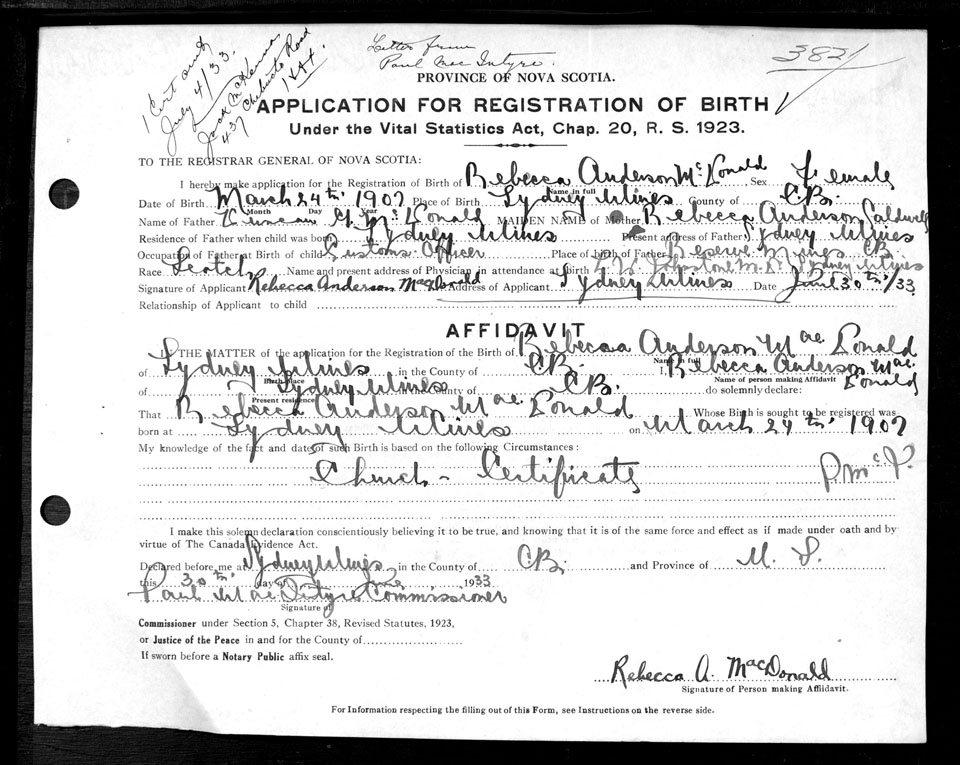 1 Cert and
July 4/33.
Jack McKenna
437 Chebucto Road
Letter from
Paul Mac Intyre.
3821
PROVINCE OF NOVA SCOTIA.
APPLICATION FOR REGISTRATION OF BIRTH
Under the Vital Statistics Act, Chap. 20, R. S. 1923.
TO THE REGISTRAR GENERAL OF NOVA SCOTIA:
I hereby make application for the Registration of Birth of Rebecca Anderson McDonald Sex Female
Name in full
Date of Birth March 24th 1907 Place of Birth Sydney Mines County of CB.
Month Day Year
Name of Father Duncan McDonald MAIDEN NAME of Mother Rebecca Anderson Caldwell
Residence of Father when child was born Sydney Mines Present address of Father Sydney Mines
Occupation of Father at Birth of child Customs Officer Place of birth of Father Reserve Mines CB
Race Scotch Name and present address of Physician in attendance at birth Johnstone M.D. Sydney Mines
Signature of Applicant Rebecca Anderson MacDonald Address of Applicant Sydney Mines Date June 30th/33
Relationship of Applicant to child
AFFIDAVIT
IN THE MATTER of the application for the Registration of the Birth of Rebecca Anderson Mac Donald
Name in full
of Sydney Mines in the County of CB. I, Rebecca Anderson Mac Donald
Birth place Name of person making Affidavit
of Sydney Mines in the County of CB. do solemnly declare:
Present residence
That Rebecca Anderson Mac Donald Whose Birth is sought to be registered was
born at Sydney Mines on March 24th 1907
My knowledge of the fact and date of such Birth is based on the following Circumstances:
Church - Certificate P.McI.
I make this solemn declaration conscientiously believing it to be true, and knowing that it is of the same force and effect as if made under oath and by
virtue of The Canada Evidence Act.
Declared before me at Sydney Mines in the County of CB. and Province of N. S.
this 30th day of June, 1933
Paul Mac Intyre Commissioner
Signature of
Commissioner under Section 5, Chapter 38, Revised Statutes, 1923,
or Justice of the Peace in and for the County of
If sworn before a Notary Public affix seal.
Rebecca A. MacDonald
Signature of Person making Affidavit.
For Information respecting the filling out of this Form, see Instructions on the reverse side.